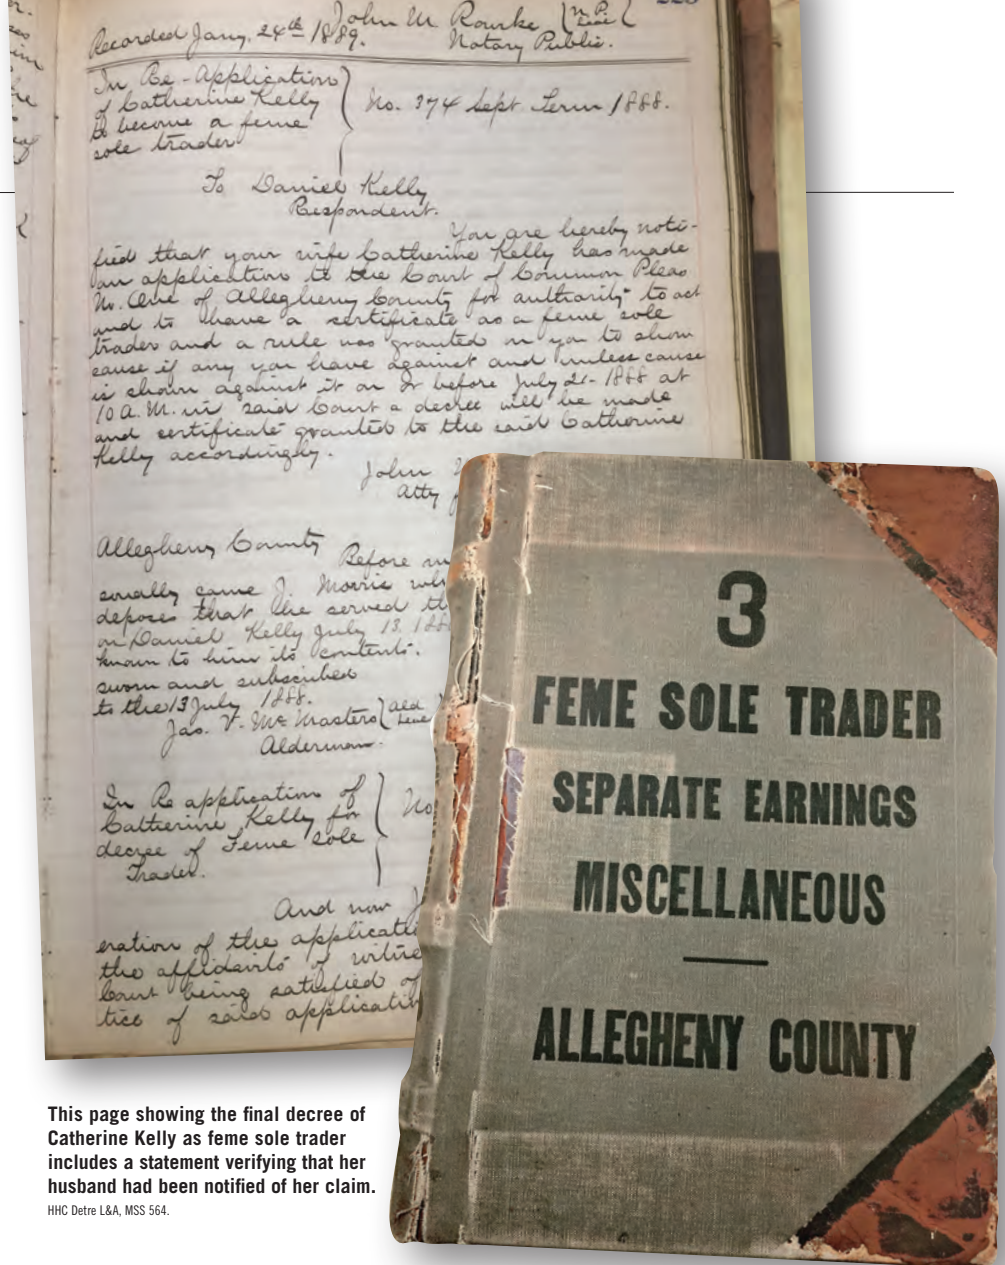 Recorded Jany. 24th 1889. John M. Rourke {N.P. Seal}
Notary Public.
In Re-Application
of Catherine Kelly
to become a feme
sole trader
No. 374 Sept. Term 1888.
To Daniel Kelly
Respondent.
You are hereby noti-
fied that your wife Catherine Kelly has made
an application to the Court of Common Pleas
No. One of Allegheny County for authority to act
and to have a certificate as a feme sole
trader and a rule was granted on you to show
cause if any you have against and unless cause
is shown against it on or before July 21- 1888 at
10 A.M. in said Court a decree will be made
and certificate granted to the said Catherine
Kelly accordingly.
John
Atty
Allegheny County
Before me
sonally came J. Morris who
deposes that he served th
on Daniel Kelly July 13, 188
known to him its contents.
sworn and subscribed
to the 13 July 1888.
Jas. V. McMasters {Ald Seal}
Alderman.
In Re application of
Catherine Kelly for
decree of Feme Sole
Trader.
No
And now J
eration of the applicati
the affidavits of witne
Court being satisfied of
tice of said applicatio
3
FEME SOLE TRADER
SEPARATE EARNINGS
MISCELLANEOUS
ALLEGHENY COUNTY
This page showing the final decree of
Catherine Kelly as feme sole trader
includes a statement verifying that her
husband had been notified of her claim.
HHC Detre L&A, MSS 564.